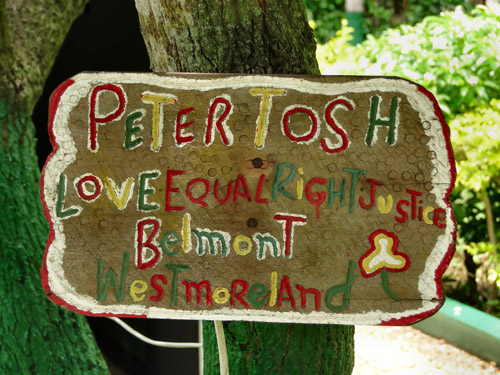 PETER TOSH
LOVE EQUAL RIGHT JUSTICE
BelmonT
WesTmoreland